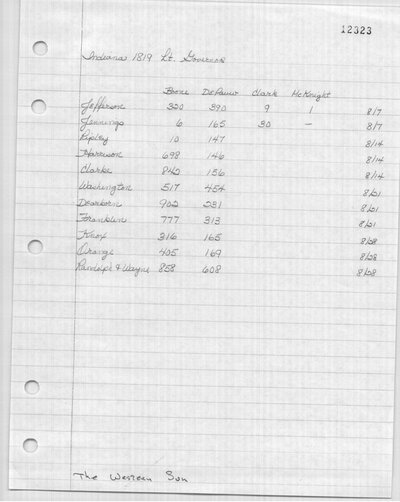 12323
Indiana 1819 Lt. Governor
Boone DePauw Clark McKnight
Jefferson 320 390 9 1 8/7
Jennings 6 165 30 - 8/7
Ripley 10 147 8/14
Harrison 698 146 8/14
Clarke 842 156 8/14
Washington 517 454 8/21
Dearborn 902 231 8/21
Franklin 777 313 8/21
Knox 316 165 8/28
Orange 405 169 8/28
Randolph & Wayne 858 608 8/28
The Western Sun